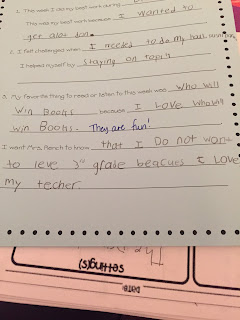 1. This week I did my best work during
This was my best work because I wanted to
get alot don.
2. I felt challenged when I needed to do my
I helped myself by staying on topic
3. My favorite thing to read or listen to this week was who will
win Books because I Love
win Books. They are fun!
I want Mrs. to know that I Do not want
to leve 3rd grade I Love
my techer.
setting(s)